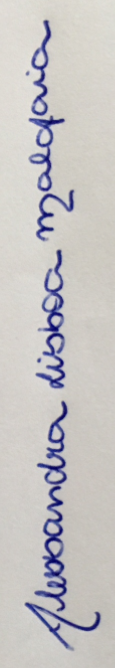 Alessandra Lisboa Malafaia